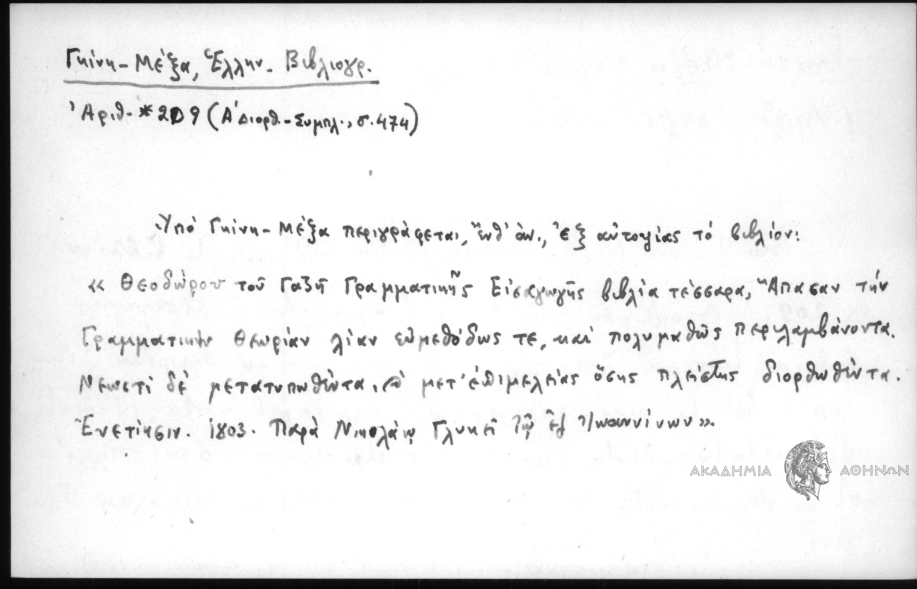 Γκίνη-Μέξα, Ἑλλην. Βιβλιογρ.
Ἀριθ. *209 (Α' Διορθ.-Συμπλ., σ. 474)
Ὑπό Γκίνη-Μέξα περιγράφεται, ἔνθ' ἀν., ἐξ αὐτοψίας τό βιβλίον:
« Θεοδώρου τοῦ Γαζῆ Γραμματικῆς Εἰσαγωγῆς βιβλία τέσσαρα, Ἅπασαν τήν
Γραμματικήν Θεωρίαν λίαν εὐμεθόδως τε, καί πολυμαθῶς περιλαμβάνοντα.
Νεωστί δέ μετατυπωθέντα, μετ' ἐπιμελείας ὅσης πλείστης διορθωθέντα.
Ἑνετίησιν. 1803. Παρά Νικολάῳ Γλυκεῖ τῷ ἐξ Ἰωαννίνων».
ΑΚΑΔΗΜΙΑ ΑΘΗΝΩΝ